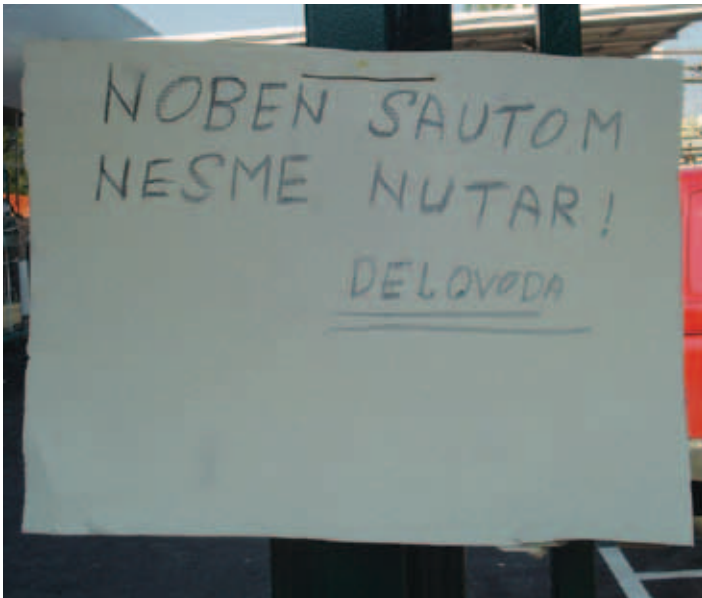 NOBEN SAUTOM
NESME NUTAR!
DELOVODA